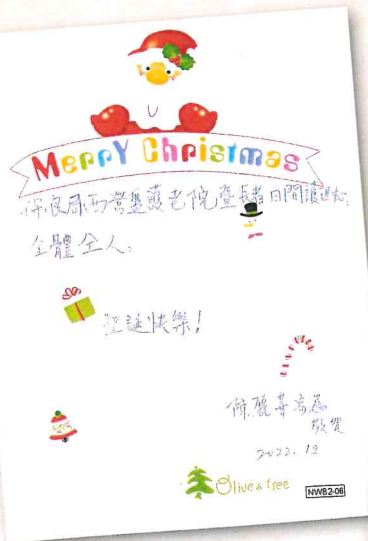 Merry Christmas
保良局西營盤護老院暨長者日間護理中心
全體仝人:
聖誕快樂!
陳麗
敬賀
2022.12
Olive's tree
NWB2-06